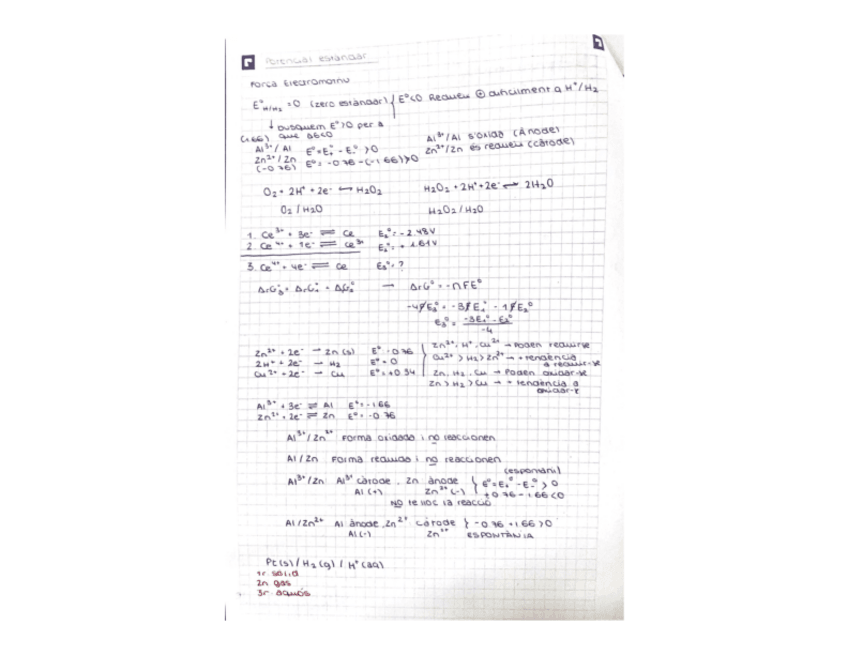 Potencial estàndar
Força Electromotriu
E°H⁺/H₂ = 0 (zero estàndar) { E°<0 Redueix ⊕ difícilment q H⁺/H₂
↓ busquem E°>0 per a
(1.66) que ΔG<0
Al³⁺/Al E°=E₊°-E₋°>0 Al³⁺/Al s'oxida (Ànode)
Zn²⁺/Zn E°= -0.76-(-1.66)>0 Zn²⁺/Zn es redueix (càtode)
(-0.76)
O₂ + 2H⁺ + 2e⁻ ⟷ H₂O₂ H₂O₂ + 2H⁺ + 2e⁻ ⟷ 2H₂O
O₂/H₂O H₂O₂/H₂O
1. Ce³⁺ + 3e⁻ ⇌ Ce E₁°= -2.48V
2. Ce⁴⁺ + 1e⁻ ⇌ Ce³⁺ E₂°= +1.61V
3. Ce⁴⁺ + 4e⁻ ⇌ Ce E₃°= ?
ΔrG₃° = ΔrG₁° + ΔG₂° → ΔrG° = -nFE°
-4FE₃° = -3FE₁° - 1FE₂°
E₃° = -3E₁° - E₂° / -4
Zn²⁺ + 2e⁻ → Zn(s) E° -0.76 { Zn²⁺, H⁺, Cu²⁺ → Poden reduir-se
2H⁺ + 2e⁻ → H₂ E°=0 Cu²⁺ > H₂ > Zn²⁺ → + tendència a reduir-se
Cu²⁺ + 2e⁻ → Cu E°=+0.34 Zn, H₂, Cu → Poden oxidar-se
Zn > H₂ > Cu → + tendència a oxidar-se
Al³⁺ + 3e⁻ ⇌ Al E°=-1.66
Zn²⁺ + 2e⁻ ⇌ Zn E°=-0.76
Al³⁺/Zn²⁺ Forma oxidada i no reaccionen
Al/Zn Forma reduida i no reaccionen
(espontani)
Al³⁺/Zn Al³⁺ càtode, Zn ànode { E°=E₊°-E₋°>0
Al(+) Zn²⁺(-) +0.76-1.66<0
NO te lloc la reacció
Al/Zn²⁺ Al ànode, Zn²⁺ càtode } -0.76+1.66>0
Al(-) Zn²⁺ ESPONTÀNIA
Pt(s)/H₂(g)/H⁺(aq)
1r sòlid
2n gas
3r aquós